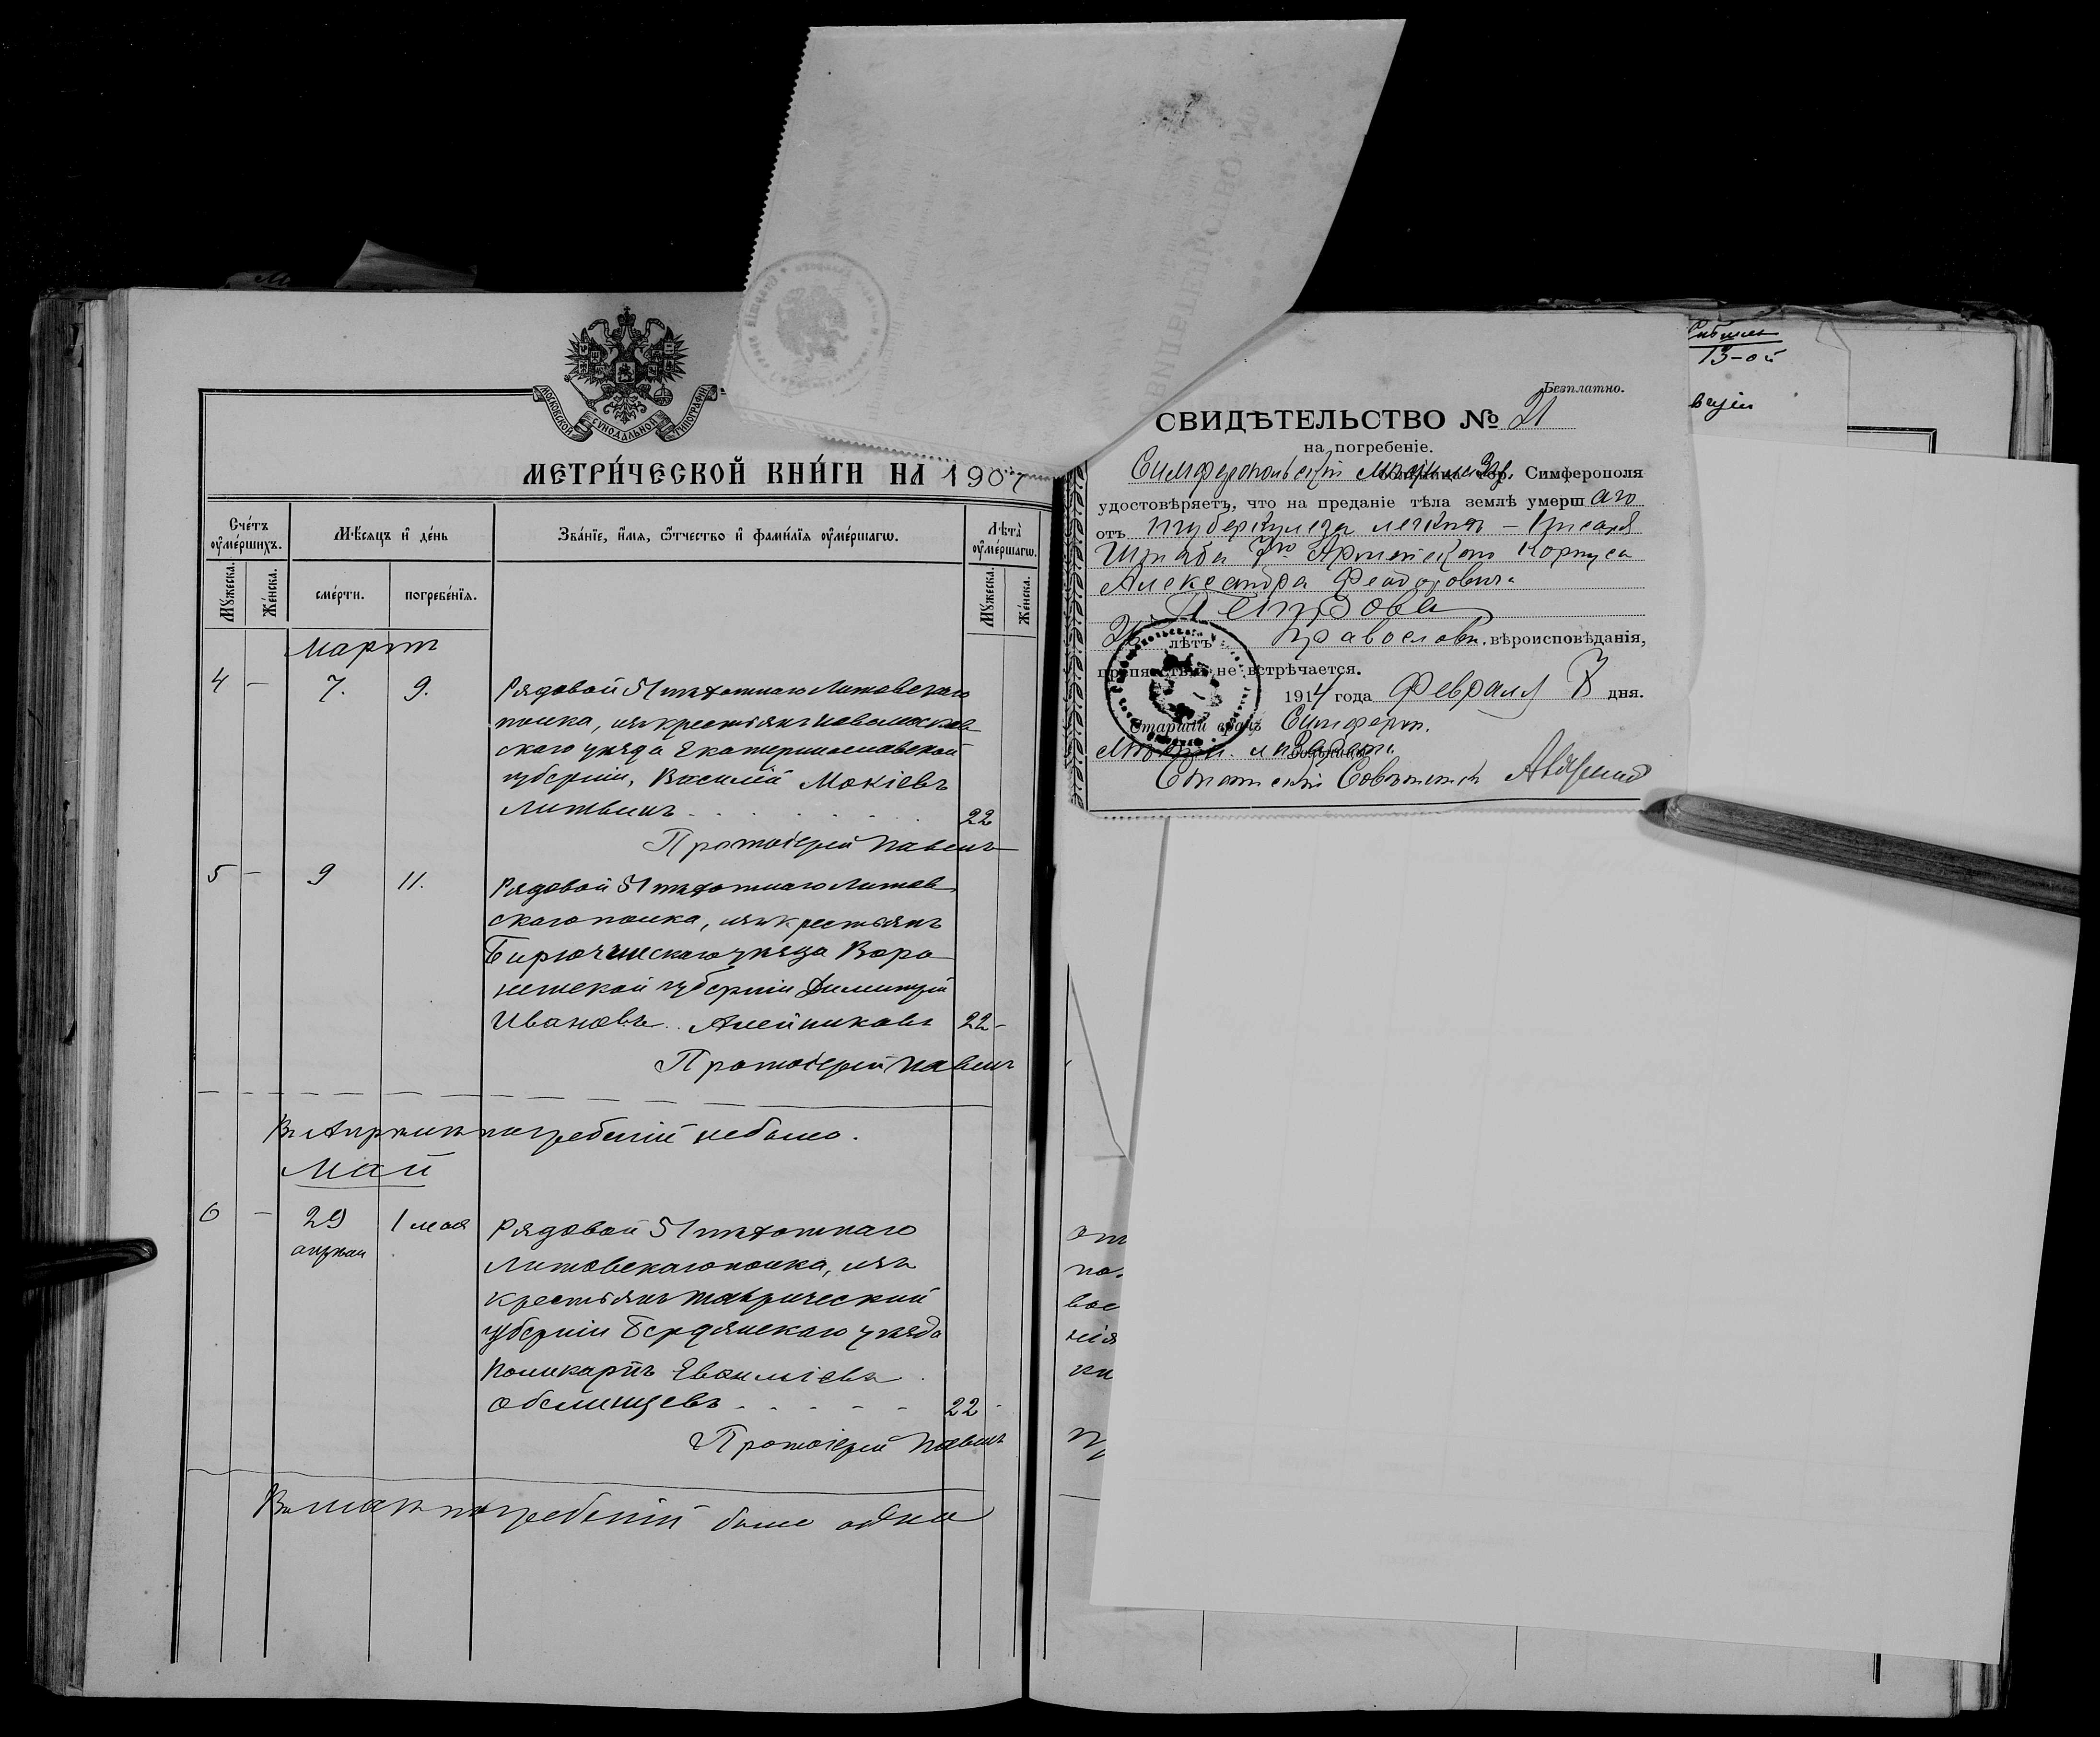 МОСКОВСКОЙ СѴНОДАЛЬНОЙ ТИПОГРАФІИ
МЕТРИ́ЧЕСКОЙ КНИ́ГИ НА 190
Сче́тъ ᲂу҆ме́ршихъ.
Мѣ́сяцъ и҆ де́нь
Зва́нїе, и҆́мя, ѻ҆́тчество и҆ фами́лїя ᲂу҆ме́ршагѡ.
Лѣ́та ᲂу҆ме́ршагѡ.
Мꙋ́жеска.
Же́нска.
сме́рти.
погребе́нїя.
Мꙋ́жеска.
Же́нска.
Мартъ
4 - 7. 9. Рядовой 51 пѣхотнаго Литовскаго
полка, изъ крестьянъ Новомосков
скаго уѣзда Екатеринославской
губерніи, Василій Мокіевъ
Литвинъ . . . . . . 22
Протоіерей Павелъ
5 - 9 11. Рядовой 51 пѣхотнаго Литов
скаго полка, изъ крестьянъ
Бирюченскаго уѣзда Воро
нежской губерніи Димитрій
Ивановъ Алейниковъ 22 -
Протоіерей Павелъ
Въ Апрѣлѣ погребеній не было.
Май
6 - 29 апрѣля 1 мая Рядовой 51 пѣхотнаго
Литовскаго полка, изъ
крестьянъ Таврической
губерніи Бердянскаго уѣзда
Поликарпъ Евѳиміевъ
22 -
Протоіерей Павелъ
Въ маѣ погребеній было одно
Безплатно.
СВИДѢТЕЛЬСТВО № 21
на погребеніе.
Симферопольскій больница гор. Симферополя
удостовѣряетъ, что на преданіе тѣла землѣ умерш аго
отъ туберкулеза легкихъ - писаря
Штаба 7го Армейскаго Корпуса
Александра Феодоровича
Петрова
лѣтъ Православн. вѣроисповѣданія,
препятствій не встрѣчается.
1914 года Февраля дня.
Старшій врачъ Симфероп.
больницы
Статскій Совѣтникъ
13-ой